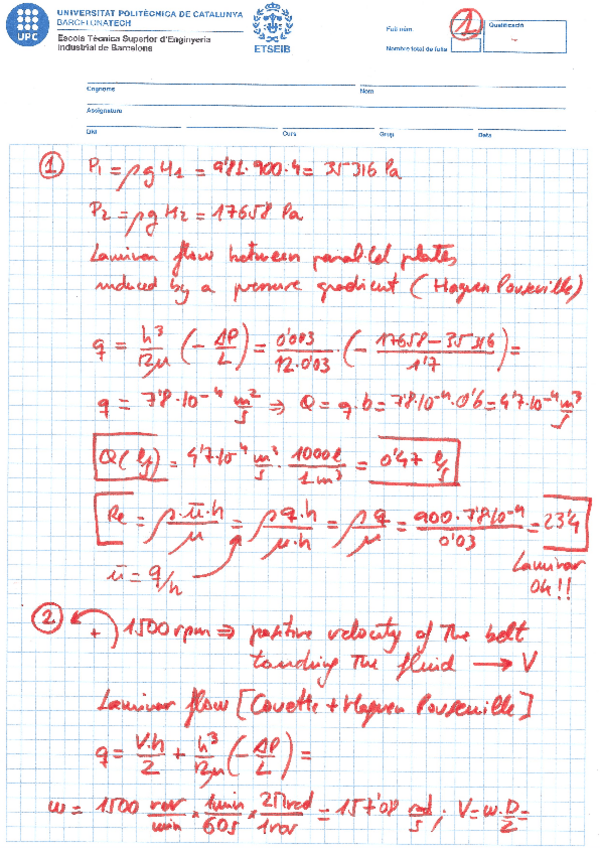 UNIVERSITAT POLITÈCNICA DE CATALUNYA
BARCELONATECH
Escola Tècnica Superior d'Enginyeria
Industrial de Barcelona
UPC
ETSEIB
Full núm.
1
Qualificació
Nombre total de fulls
Cognoms
Nom
Assignatura
DNI
Curs
Grup
Data
① P₁ = ρgH₁ = 9'81·900·4 = 35316 Pa
P₂ = ρgH₂ = 17658 Pa
Laminar flow between parallel plates
induced by a pressure gradient (Haguen Pouseuille)
q = h³/12μ (- ΔP/L) = 0'003/12·0'03 · (- 17658-35316/1'7) =
q = 7'8·10⁻⁴ m²/s ⇒ Q = q·b = 7'8·10⁻⁴·0'6 = 4'7·10⁻⁴ m³/s
Q(l/s) = 4'7·10⁻⁴ m³/s · 1000l/1m³ = 0'47 l/s
Re = ρ·ū·h/μ = ρq·h/μ·h = ρq/μ = 900·7'8·10⁻⁴/0'03 = 23'4
ū = q/h
Laminar
OK!!
② + 1500 rpm ⇒ positive velocity of the belt
touching the fluid → V
Laminar flow [Couette + Haguen Pouseuille]
q = V·h/2 + h³/12μ (- ΔP/L) =
ω = 1500 rev/min × 1min/60s × 2πrad/1rev = 157'08 rad/s ; V = ω·D/2 =